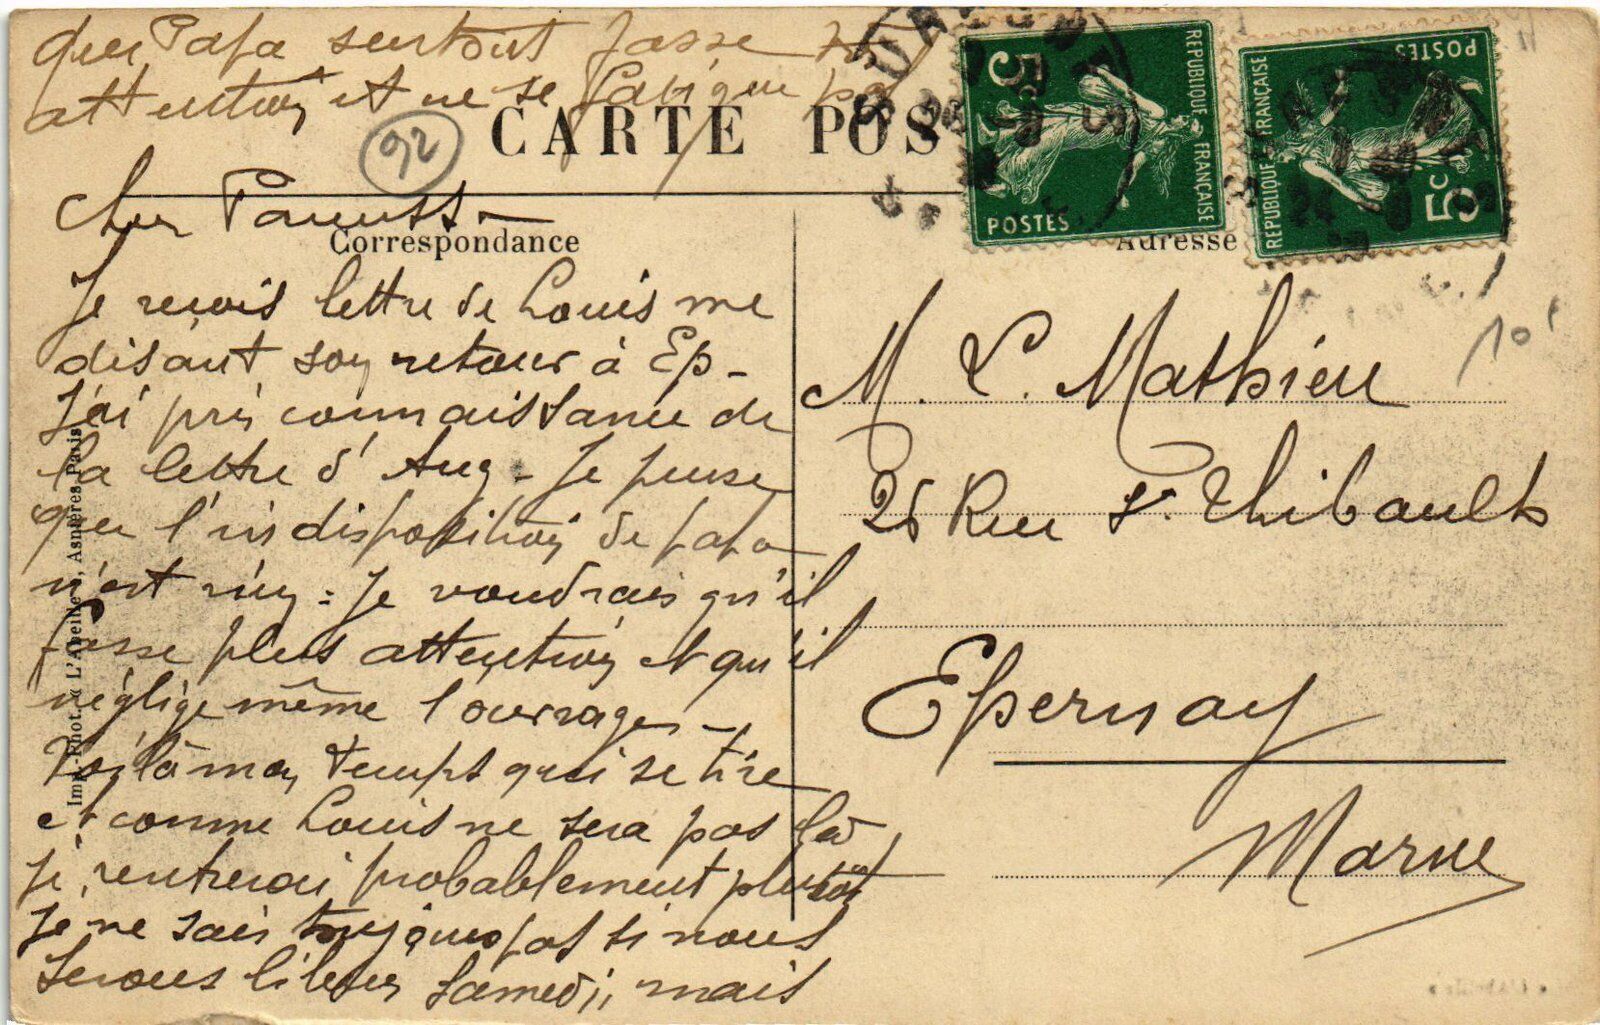 que Papa surtout fasse
attention et ne se fatigue pas
92
CARTE POS
Correspondance
Chers Parents -
Je reçois lettre de Louis me
disant son retour à Ep -
J'ai pris connaissance de
la lettre d'Aug - Je pense
que l'indisposition de papa
n'est rien : Je voudrais qu'il
fasse plus attention et qu'il
néglige même l'ouvrage -
Voilà mon temps qui se tire
et comme Louis ne sera pas là
je rentrerai probablement plutôt
Je ne sais toujours pas si nous
serons libérés Samedi, mais
Imp.-Phot. à L'Abeille, Asnières-Paris
5
POSTES
REPUBLIQUE FRANÇAISE
POSTES
5c
REPUBLIQUE FRANÇAISE
Adresse
10
M. C. Mathieu
26 Rue St. Thibault
Epernay
Marne